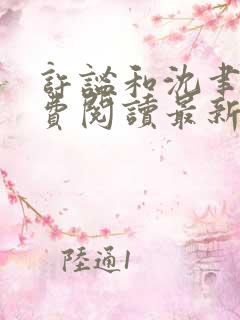 許謐和沈聿
費閱讀最新
陸通1